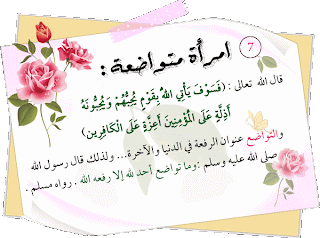 7 امرأة متواضعة :
قال الله تعالى : (فَسَوْفَ يَأْتِي اللهُ بِقَوْمٍ يُحِبُّهُمْ وَيُحِبُّونَهُ
أَذِلَّةٍ عَلَى الْمُؤْمِنِينَ أَعِزَّةٍ عَلَى الْكَافِرِينَ)
والتواضع عنوان الرفعة في الدنيا والآخرة... ولذلك قال رسول الله
صلى الله عليه وسلم :وما تواضع أحد لله إلا رفعه الله . رواه مسلم .